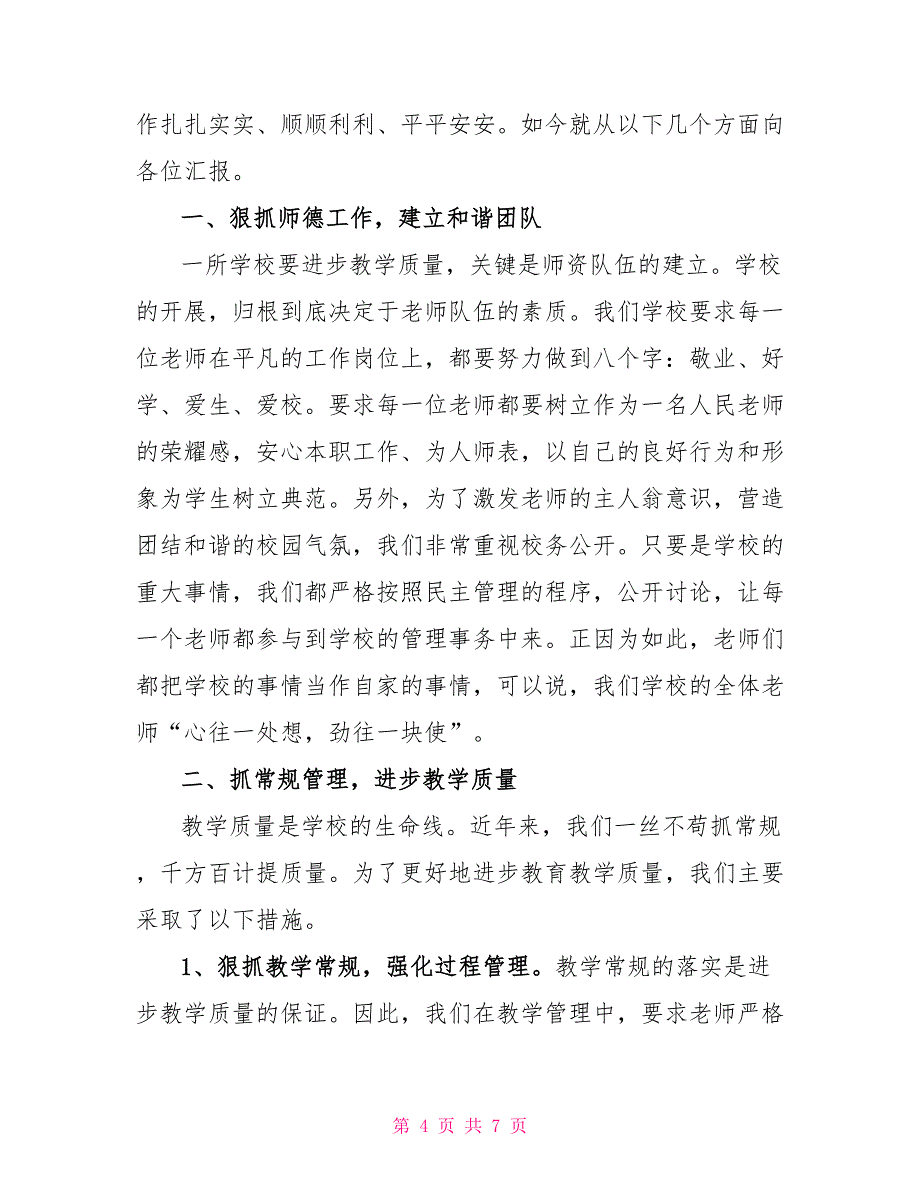 作扎扎实实、顺顺利利、平平安安。如今就从以下几个方面向
各位汇报。
一、狠抓师德工作，建立和谐团队
一所学校要进步教学质量，关键是师资队伍的建立。学校
的开展，归根到底决定于老师队伍的素质。我们学校要求每一
位老师在平凡的工作岗位上，都要努力做到八个字：敬业、好
学、爱生、爱校。要求每一位老师都要树立作为一名人民老师
的荣耀感，安心本职工作、为人师表，以自己的良好行为和形
象为学生树立典范。另外，为了激发老师的主人翁意识，营造
团结和谐的校园气氛，我们非常重视校务公开。只要是学校的
重大事情，我们都严格按照民主管理的程序，公开讨论，让每
一个老师都参与到学校的管理事务中来。正因为如此，老师们
都把学校的事情当作自家的事情，可以说，我们学校的全体老
师“心往一处想，劲往一块使”。
二、抓常规管理，进步教学质量
教学质量是学校的生命线。近年来，我们一丝不苟抓常规
，千方百计提质量。为了更好地进步教育教学质量，我们主要
采取了以下措施。
1、狠抓教学常规，强化过程管理。教学常规的落实是进
步教学质量的保证。因此，我们在教学管理中，要求老师严格
第 4 页 共 7 页